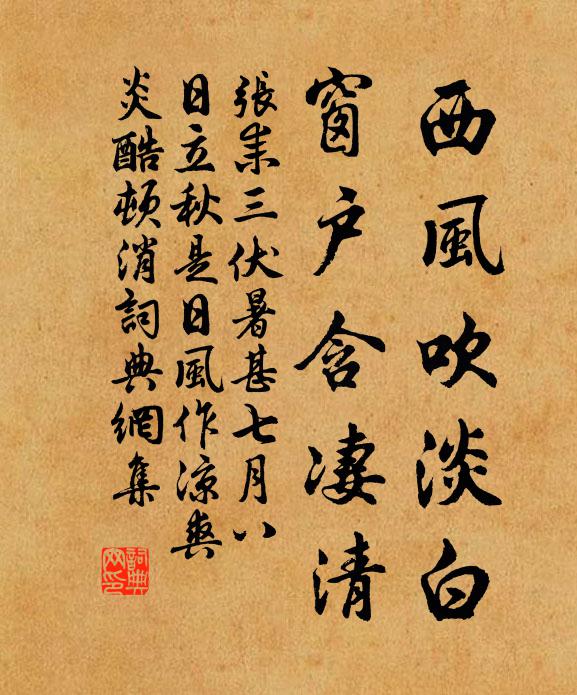 西風吹淡白
窗戶含凄清
張耒三伏暑甚七月八
日立秋是日風作涼爽
炎酷頓消詞典網集
詞典
网印